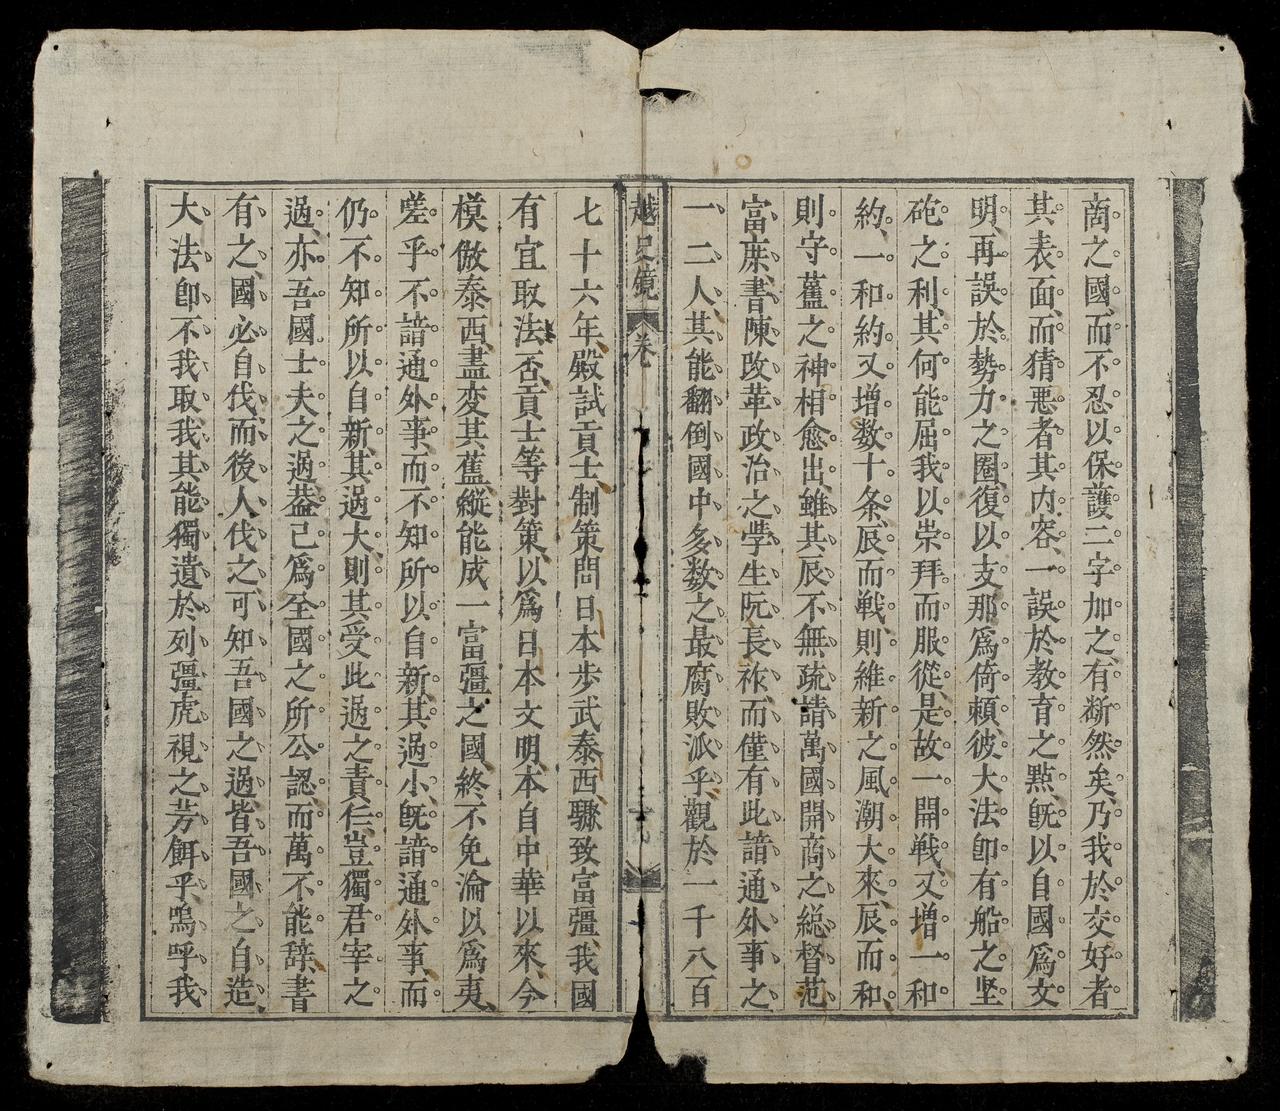 商之國、而不忍以保護二字加之、有断然矣、乃我於交好者
其表面、而猜悪者其内容、一誤於教育之㸃、旣以自國爲文
明、再誤於勢力之圏、復以支那爲倚頼、彼大法卽有船之坚
砲之利、其何能屈我以崇拜而服從、是故一開戦、又增一和
約、一和約又增数十条、辰而戦、則維新之風潮大來、辰而和、
則守舊之神相愈出、雖其辰不無疏請萬國開商之総督范
富庶、書陳改革政治之學生阮長祚、而僅有此諳通外事之
一、二人、其能翻倒國中多数之最腐敗派乎、觀於一千八百
越史鏡 卷
七十六年、殿試貢士制策問日本步武泰西、驟致富彊、我國
有宜取法否、貢士等對策、以爲日本文明本自中華以來、今
模倣泰西、盡変其舊、縱能成一富彊之國、終不免淪以爲夷、
嗟乎不諳通外事、而不知所以自新、其過小、旣諳通外事、而
仍不知所以自新、其過大、則其受此過之責任、豈獨君宰之
過、亦吾國士夫之過、葢己爲全國之所公認、而萬不能辞、書
有之、國必自伐而後人伐之、可知吾國之過、皆吾國之自造、
大法卽不我取、我其能獨遺於列彊虎視之芳餌乎、嗚呼、我